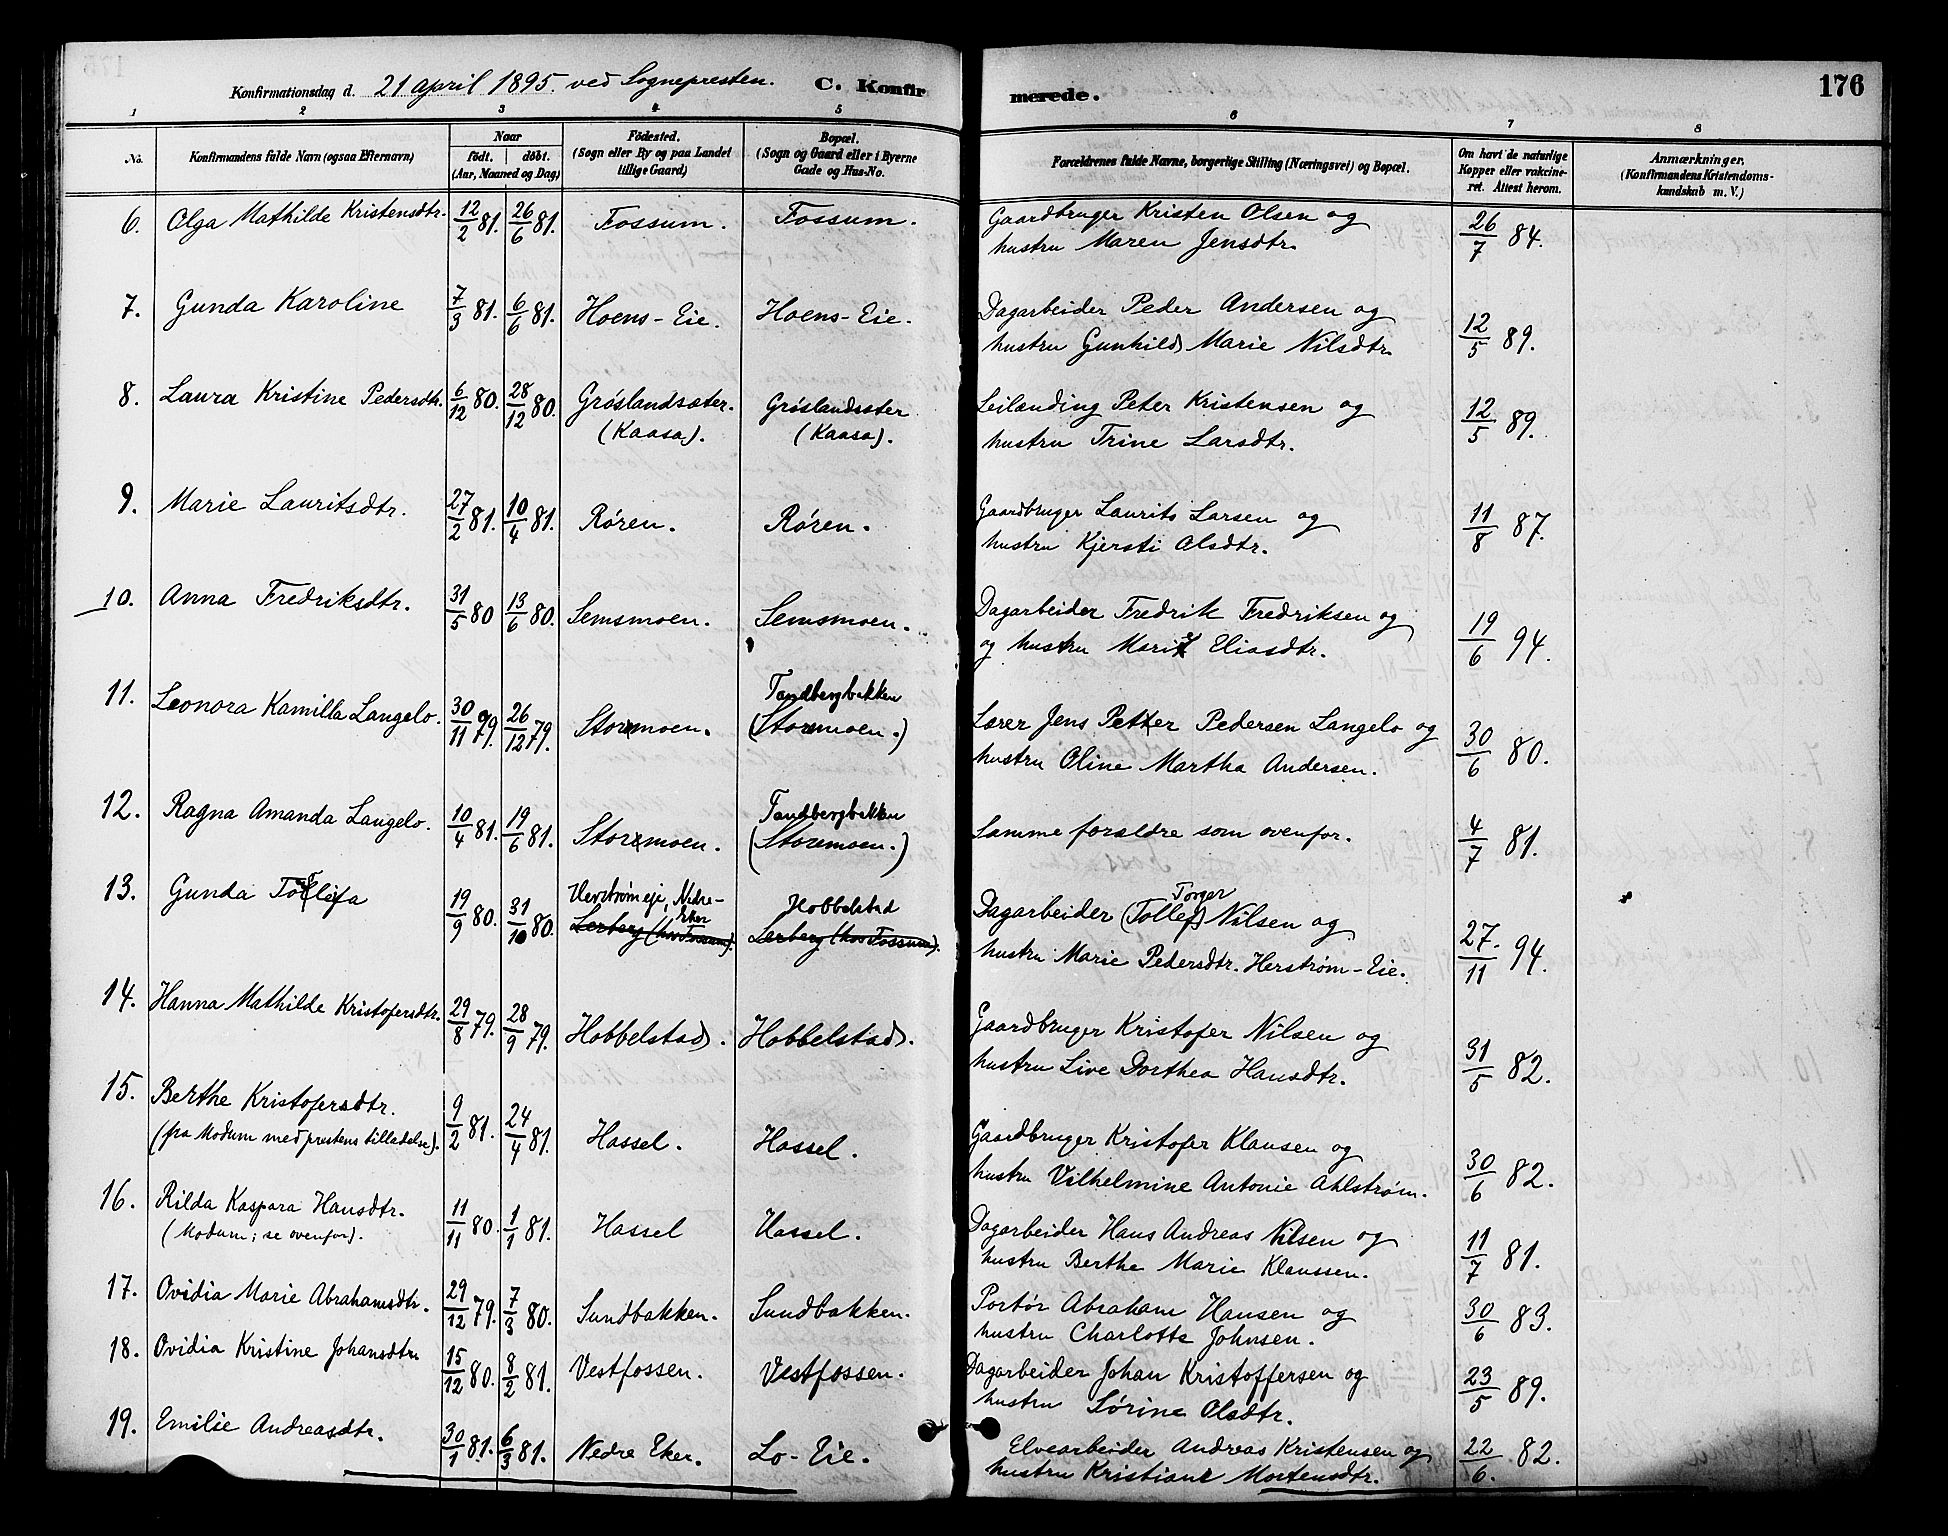 Konfirmationsdag d. 21 april 1895. ved Sognepresten. C. Konfirmerede. 176
1 2 3 4 5 6 7 8
No. Konfirmandens fulde Navn (ogsaa Efternavn) Naar født. døbt. (Aar, Maaned og Dag) Fødested. (Sogn eller By og paa Landet tillige Gaard) Bopæl. (Sogn og Gaard eller i Byerne Gade og Hus-No. Forældrenes fulde Navne, borgerlige Stilling (Næringsvei) og Bopæl. Om havt de naturlige Kopper eller vakcineret. Attest herom. Anmærkninger. (Konfirmandens Kristendomskundskab m. V.)
6. Olga Mathilde Kristensdtr. 12/2 81. 26/6 81. Fossum. Fossum. Gaardbruger Kristen Olsen og 26/7 84.
hustru Maren Jensdtr.
7. Gunda Karoline 7/3 81. 6/6 81. Hoens-Eie. Hoens-Eie. Dagarbeider Peder Andersen og 12/5 89.
hustru Gunhild Marie Nilsdtr.
8. Laura Kristine Pedersdtr. 6/12 80. 28/12 80. Grøslandsæter. Grøslandsæter Leilænding Peter Kristensen og 12/5 89.
(Kaasa). (Kaasa). hustru Trine Larsdtr.
9. Marie Lauritsdtr. 27/2 81. 10/4 81. Røren. Røren. Gaardbruger Laurits Larsen og 11/8 87.
hustru Kjersti Olsdtr.
10. Anna Fredriksdtr. 31/5 80 13/6 80. Semsmoen. Semsmoen. Dagarbeider Fredrik Fredriksen og 19/6 94.
og hustru Marie Eliasdtr.
11. Leonora Kamilla Langelo. 30/11 79. 26/12 79. Storemoen. Tandbergbakken
(Storemoen.) Lærer Jens Petter Pedersen Langelo og 30/6 80.
hustru Oline Martha Andersen.
12. Ragna Amanda Langelo. 10/4 81. 19/6 81. Storemoen. Tandbergbakken
(Storemoen.) Samme forældre som ovenfor. 4/7 81.
13. Gunda 19/9 80. 31/10 80. Nedre-Eker Hobbelstad
Lerberg (hos Fossum). Lerberg (hos Fossum). Dagarbeider (Tollef) Torger Nilsen og 27./11 94.
hustru Marie Pedersdtr. Herstrøm-Eie.
14. Hanna Mathilde Kristofersdtr. 29/8 79. 28/9 79. Hobbelstad. Hobbelstad. Gaardbruger Kristofer Nilsen og 31/5 82.
hustru Live Dorthea Hansdtr.
15. Berthe Kristofersdtr. 9/2 81. 24/4 81. Hassel. Hassel. Gaardbruger Kristofer Klausen og 30/6 82.
(fra Modum med prestens tilladelse). hustru Vilhelmine Antonie Ahlstrøm.
16. Rilda Kaspara Hansdtr. 11/11 80. 1/1 81. Hassel Hassel. Dagarbeider Hans Andreas Nilsen og 11/7 81.
(Modum; se ovenfor). hustru Berthe Marie Klaussen.
17. Ovidia Marie Abrahamsdtr. 29/12 79. 7/3 80. Sundbakken. Sundbakken. Portør Abraham Hansen og 30/6 83.
hustru Charlotte Johnsen.
18. Ovidia Kristine Johansdtr. 15/12 80. 8/2 81. Vestfossen. Vestfossen. Dagarbeider Johan Kristoffersen og 23/5 89.
hustru Sørine Olsdtr.
19. Emilie Andreasdtr. 30/1 81. 6/3 81. Nedre Eker. Lo-Eie. Elvearbeider Andreas Kristensen og 22/6. 82.
hustru Kristiane Mortensdtr.